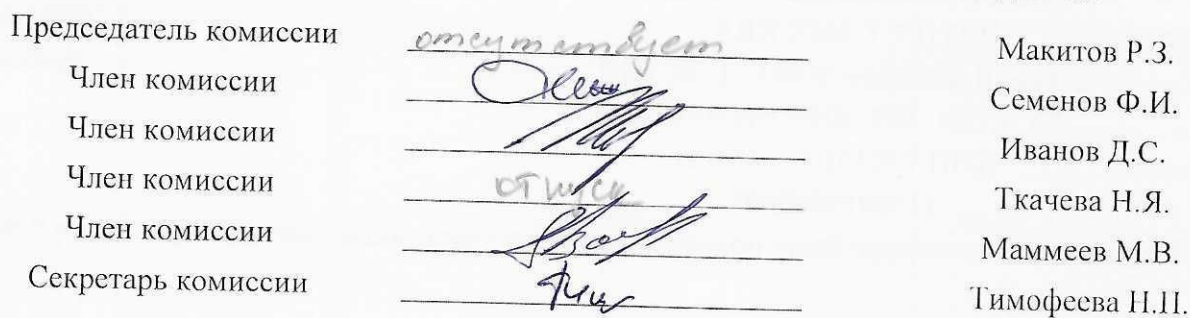 Председатель комиссии отсутствует Макитов Р.З.
Член комиссии Семенов Ф.И.
Член комиссии Иванов Д.С.
Член комиссии отпуск Ткачева Н.Я.
Член комиссии Маммеев М.В.
Секретарь комиссии Тимофеева Н.П.